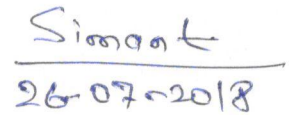 Simant
26-07-2018